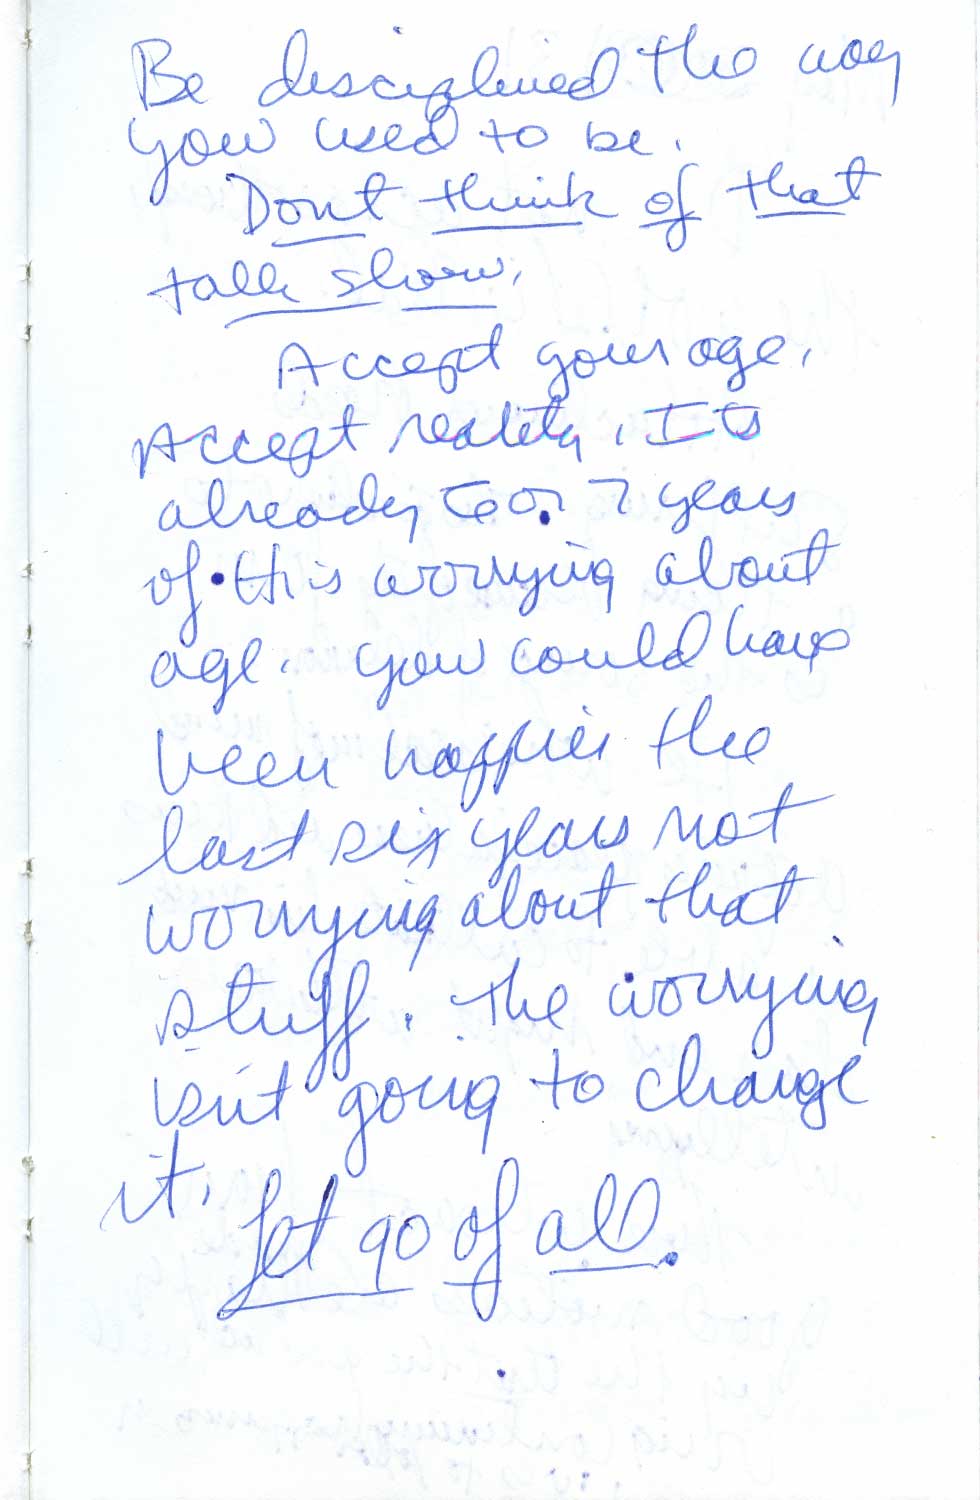 Be disciplined the way
you used to be.
Dont think of that
talk show.
Accept your age.
Accept reality. Its
already 6 or 7 years
of this worrying about
age. You could have
been happier the
last six years not
worrying about that
stuff. The worrying
isnt going to change
it.
Let go of all.